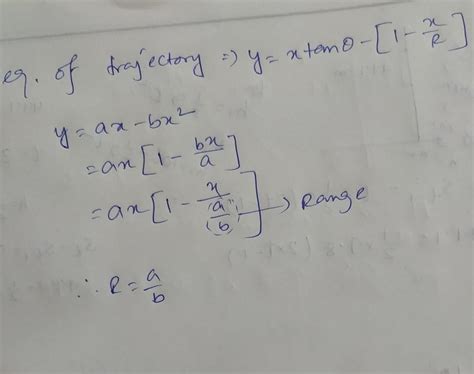 eq. of trajectory ⇒ y = x tanθ - [1 - x/R]
y = ax - bx²
= ax [1 - bx/a]
= ax [1 - x/(a/b)] → Range
∴ R = a/b